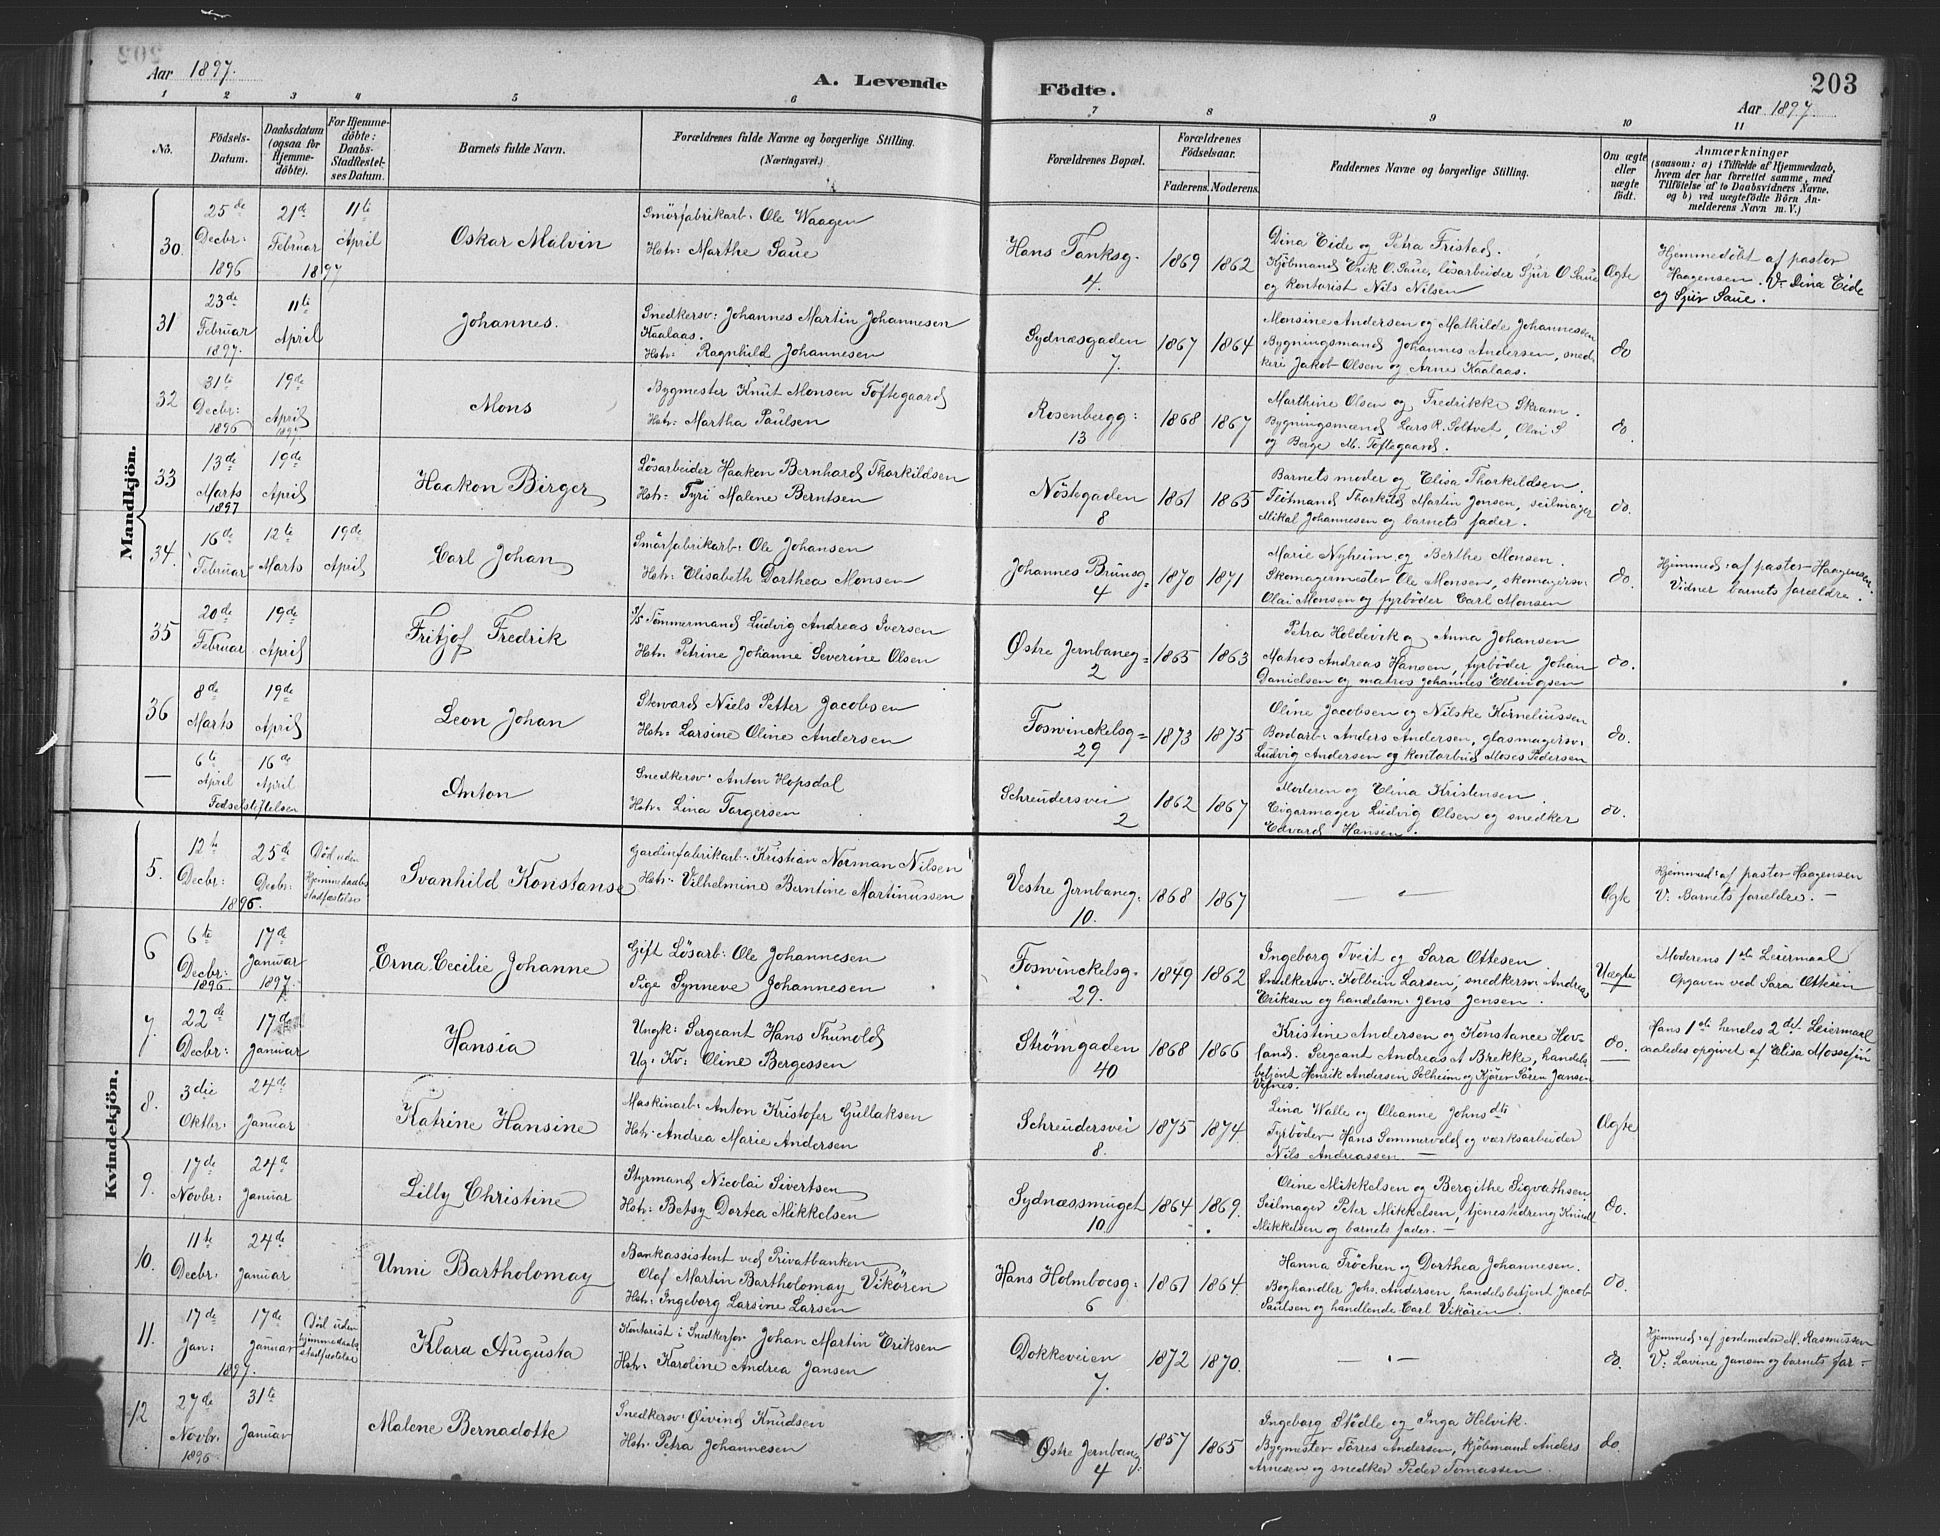 Aar 1897.
A. Levende
Födte.
203
Aar 1897.
1 2 3 4 5 6 7 8 9 10 11
No.
Födsels-Datum.
Daabsdatum (ogsaa for Hjemme-döbte).
For Hjemme-döbte: Daabs-Stadfæstel-ses Datum.
Barnets fulde Navn.
Forældrenes fulde Navne og borgerlige Stilling. (Næringsvei.)
Forældrenes Bopæl.
Forældrenes Födselsaar.
Faderens. Moderens.
Faddernes Navne og borgerlige Stilling.
Om ægte eller uægte födt.
Anmærkninger
(saasom: a) i Tilfælde af Hjemmedaab, hvem der har forrettet samme, med Tilföielse af to Daabsvidners Navne. og b) ved uægtefödte Börn Anmelderens Navn m. V.)
Mandkjön.
30 25de Decbr: 1896 21de Februar 1897 11te April
Oskar Malvin
Smörfabrikarb: Ole Waagen
Hstr: Marthe Saue
Hans Tanksg. 4. 1869 1862
Dina Eide og Petra Fristad.
Kjöbmand Erik O. Saue, lösarbeider Sjur O Saue
og kontorist Nils Nilsen
Ægte
Hjemmedöbt af pastor
Haagensen. V: Dina Eide
og Sjur Saue.
31 23de Februar 1897. 11te April
Johannes.
Snedkersv: Johannes Martin Johannesen
Kaalaas.
Hstr: Ragnhild Johannesen
Sydnæsgaden 7. 1867 1864
Monsine Andersen og Mathilde Johannessen
Bygningsmand Johannes Andersen, sned-
keri Jakob Olsen og Arne Kaalaas.
do
32 31te Decbr: 1896 19de April 1897
Mons
Bygmester Knut Monsen Toftegaard
Hstr: Martha Paulsen
Rosenbergg: 13 1868 1867
Marthine Olsen og Fredrikke Skram.
Bygningsmænd Lars R. Soltvet, Olai S
og Berge M. Toftegaard.
do.
33 13de Marts 1897 19de April
Haakon Birger
Lösarbeider Haakon Bernhard Thorkildsen
Hstr: Tyri Malene Berntsen
Nöstegaden 8 1861 1865
Barnets moder og Elisa Thorkildsen.
Flötmand Thorkild Martin Jonsen, seilmager
Mikal Johannesen og barnets fader.
do.
34. 16de Februar 12te Marts 19de April
Carl Johan
Smörfabrikarb: Ole Johansen
Hstr: Elisabeth Dorthea Monsen
Johannes Brunsg= 4 1870 1871
Marie Nyheim og Berthe Monsen.
Skomagermester Ole Monsen, skomagersv:
Olai Monsen og fyrböder Carl Monsen
do.
Hjemmed: af pastor Haagensen.
Vidner barnets forældre.
35 20de Februar 19de April
Fritjof Fredrik
Tömmermand Ludvig Andreas Iversen
Hstr: Petrine Johanne Severine Olsen
Østre Jernbaneg= 2 1865 1863
Petra Holdevik og Anna Johansen
Matros Andreas Hansen, fyrböder Johan
Danielsen og matros Johannes Ellingsen
do.
36 8de Marts 19de April
Leon Johan
Steward Niels Petter Jacobsen
Hstr: Larsine Oline Andersen
Foswinckelsg= 29 1873 1875
Oline Jacobsen og Nilske Korneliussen
Bordarb: Anders Andersen, glasmagersv:
Ludvig Andersen og kontorbud Moses Pedersen
do.
— 6te April 16de April
Födselstiftelsen
Anton
Snedkersv: Anton Hopsdal
Hstr: Lina Torgersen
Schreudersvei 2 1862 1867
Moderen og Elina Kristensen.
Cigarmager Ludvig Olsen og snedker
Edvard Hansen.
do.
Kvindekjön.
5. 12te Decbr: 25de Decbr: 1896. Död uden Hjemmedaabs stadfæstelse
Svanhild Konstanse
Gardinfabrikarb: Kristian Norman Nilsen
Hstr: Vilhelmine Berntine Martinussen
Vestre Jernbaneg. 10. 1868 1867
—
Ægte
Hjemmed: af pastor Haagensen
V: Barnets forældre. —
6 6te Decbr: 1896 17de Januar 1897.
Erna Cecilie Johanne
Gift Lösarb: Ole Johannesen
Pige Synneve Johannesen
Foswinckelsg. 29. 1849 1862
Ingeborg Tveit og Sara Ottesen
Snedkersv: Kolbein Larsen, snedkersv: Andreas
Eriksen og handelsm: Jens Jensen.
Uægte
Moderens 1ste Leiermaal
Opgaven ved Sara Ottesen
7. 22de Decbr: 17de Januar
Hansia
Ungk: Sergeant Hans Thunold
Ug: Kv: Oline Bergessen
Strømgaden 40 1868 1866
Kristine Andersen og Konstance Hov-
land. Sergeant Andreas A Brekke, handels-
betjent Henrik Andersen Solheim og Kjören Sören Jansen
Vefnes.
do.
Hans 1ste hendes 2det Leiermaal
saaledes opgivet af Elisa Mossefin
8. 3die Oktbr: 24de Januar
Katrine Hansine
Maskinarb: Anton Kristofer Gullaksen
Hstr: Andrea Marie Andersen
Schreudersvei 8. 1875 1874.
Lina Walle og Oleanne Johnsdts
Fyrböder Hans Sommervold og værksarbeider
Nils Andreassen. —
Ægte
9. 17de Novbr: 24de Januar
Lilly Christine
Styrmand Nicolai Sivertsen
Hstr: Betsy Dortea Mikkelsen
Sydnæssmuget 10. 1864 1869.
Oline Mikkelsen og Bergithe Sigvathsen.
Seilmager Peter Mikkelsen, tjenestedreng Knud
Mikkelsen og barnets fader. —
do.
10. 11te Decbr: 24de Januar
Unni Bartholomay
Bankassistent ved Privatbanken
Olaf Martin Bartholomay Vikören
Hstr: Ingeborg Larsine Larsen
Hans Holmboesg: 6 1861 1864.
Hanna Fröchen og Dorthea Johannesen.
Boghandler Johs. Andersen, handelsbetjent Jacob
Paulsen og handlende Carl Vikören.
do.
11. 17de Jan: 1897. 17de Januar Död uden hjemmedaabs stadfæstelse
Klara Augusta
Kontorist i Snedkerfor. Johan Martin Eriksen
Hstr: Karoline Andrea Jansen
Dokkeveien 7. 1872 1870.
—
do.
Hjemmed: af jordemoder M. Rasmussen
V: Lovine Jansen og barnets far —
12 27de Novbr: 1896 31te Januar
Malene Bernadotte
Snedkersv: Øivind Knudsen
Hstr: Petra Johannesen
Østre Jernbaneg: 4 1857 1865
Ingeborg Stödle og Inga Helvik.
Bygmester Torres Andersen, kjöbmand Anders
Arnesen og snedker Peder Tomassen.
do.